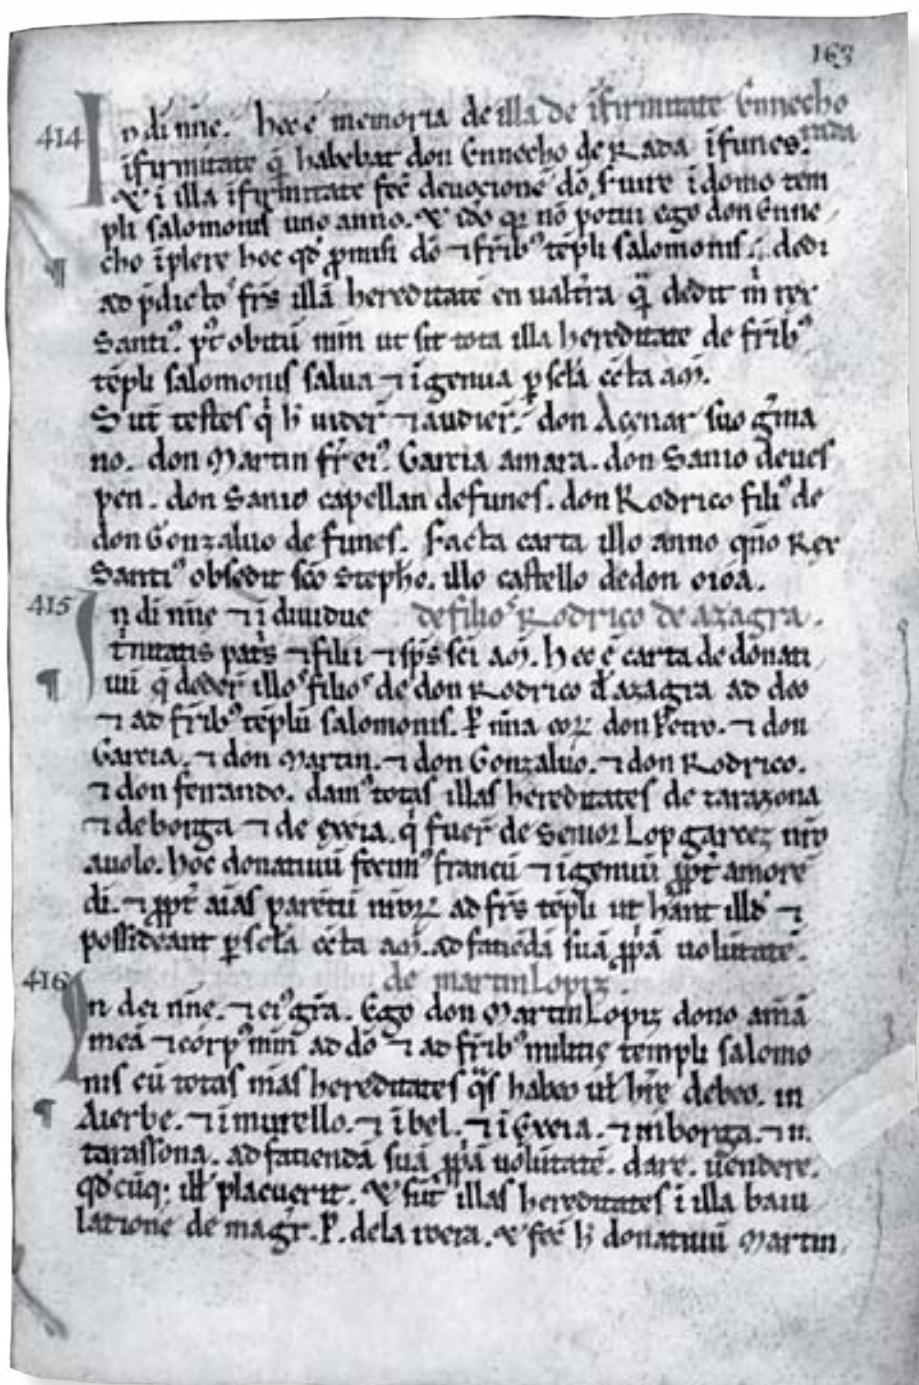 163
414 In di nñe. hec ē memoria de illa de īfirmitate Ennecho
īfirmitate q̄ habebat don Ennecho de Rada īfunes. rada
⁊ ī illa īfirmitate fec̄ deuocionē dō. seruire ī domo tem
pli salomonis uno anno. ⁊ ideo q̄ nō potui ego don Enne
cho īplere hoc qd̄ promisi dō ⁊ frībꝰ tēpli salomonis. dedi
ad p̄dictoˢ frs̄ illā hereditatē en ualt̄ra q̄ dedit m̄ rex
Santiꝰ. pꝰt obitū mm̄ ut sit tota illa hereditate de frībꝰ
tēpli salomonis salua ⁊ īgenua p scl̄a cc̄la am̄.
Sūt testes q̄ h̄ uider̄ ⁊ audier̄. don Açenar suo ḡma
no. don Martin fr̄ eiꝰ. Garcia amara. don Sanio deues
pen. don Sanio capellan defunes. don Rodrico filiꝰ de
don Gonzaluo de funes. Facta carta illo anno qn̄o Rex
Santiꝰ obsedit sc̄o Stepho. illo castello dedon oioā.
415 In di nñe ⁊ īdiuidue de filioˢ Rodrico de azagra.
t̄nitatis pat̄s ⁊ filii ⁊ sp̄s sc̄i am̄. hec ē carta de donati
uū q̄ deder̄ illoˢ filioˢ de don Rodrico d̄ azagra ad deo
⁊ ad frībꝰ tēplū salomonis. P nīna coꝝ don Petro. ⁊ don
Garcia. ⁊ don Martin. ⁊ don Gonzaluo. ⁊ don Rodrico.
⁊ don ferrando. damꝰ totas illas hereditates de tarazona
⁊ de borga ⁊ de exeia. q̄ fuer̄ de Senior Lop garcez nr̄o
auolo. hoc donatiuū fecimꝰ francū ⁊ īgenuū ꝓpt̄ amorē
di. ⁊ ꝓpt̄ aīas parētū nr̄oꝝ ad frs̄ tēpli ut hānt illd̄ ⁊
possideant p scl̄a cc̄la am̄. ad faciēdā suā ꝓpā uolūtatē.
416 de martin Lopiz.
In dei nñe. ⁊ eiꝰ grā. Ego don Martin Lopiz dono amā
meā ⁊ corpꝰ mm̄ ad dō ⁊ ad frībꝰ militię templi salomo
nis cū totas mās hereditates q̄s habeo ul̄ hr̄e debeo. in
Aierbe. ⁊ ī murello. ⁊ ībel. ⁊ ī Exeia. ⁊ in borga. ⁊ in
tarassona. ad faciendā suā ꝓpā uolūtatē. dare. uēndere.
qd̄ cūq; ill̄ placuerit. ⁊ sūt illas hereditates ī illa baiu
latione de magr̄. P. dela roera. ⁊ fec̄ h̄ donatiuū Martin